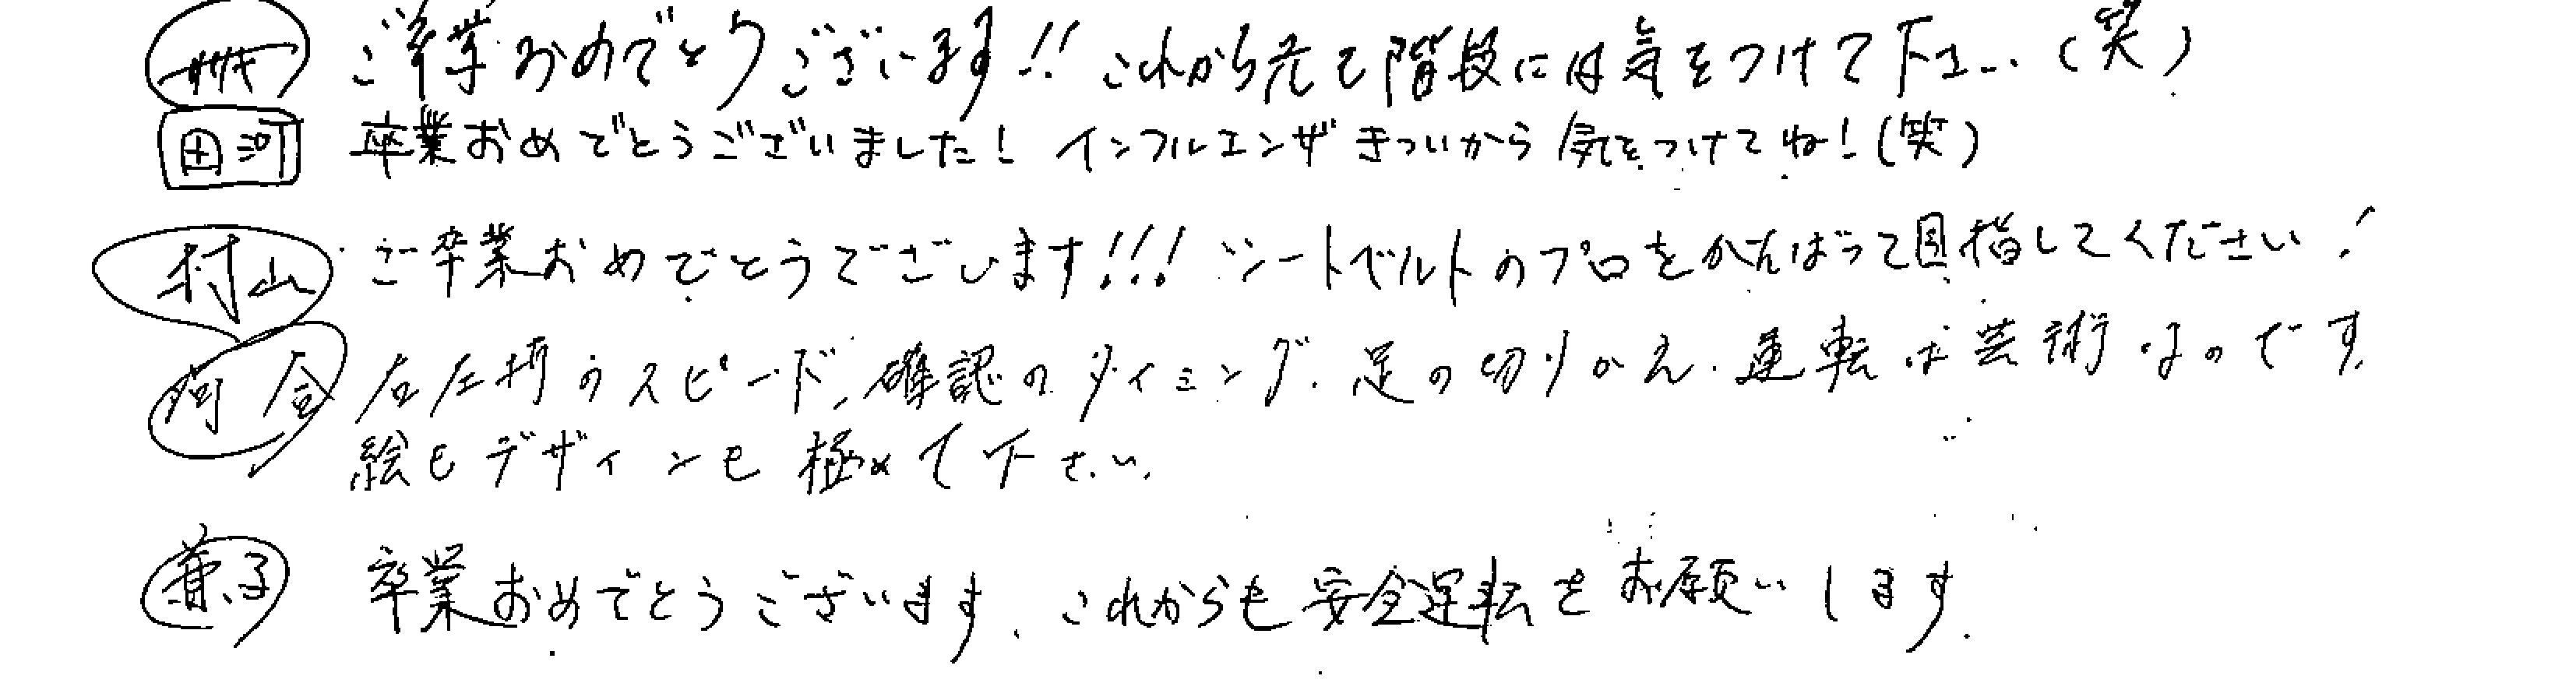 ご卒業おめでとうございます!! これから先も階段には気をつけて下さい(笑)
田河 卒業おめでとうございました! インフルエンザきついから気をつけてね!(笑)
村山 ご卒業おめでとうございます!!! シートベルトのプロをがんばって目指してください!
河合 右左折のスピード、確認のタイミング、足の切りかえ、運転は芸術なのです。
絵もデザインも極めて下さい。
兼子 卒業おめでとうございます。これからも安全運転をお願いします。